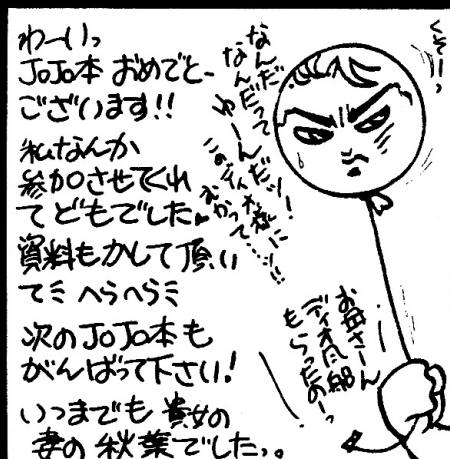 わーいっ
JoJo本 おめでと、
ございます!!
私なんか
参加させてくれ
て どもでした♥
資料もかして頂い
てミ へらへらミ
次のJoJo本も
がんばって下さい!
いつまでも 貴女の
妻の 秋葉でしたっ。
くそーっ
なんだ
なんだって
ゆーんだッ!
このディオ様に
むかって…!!
お母さーん
ディオ風船
もらったのーっ